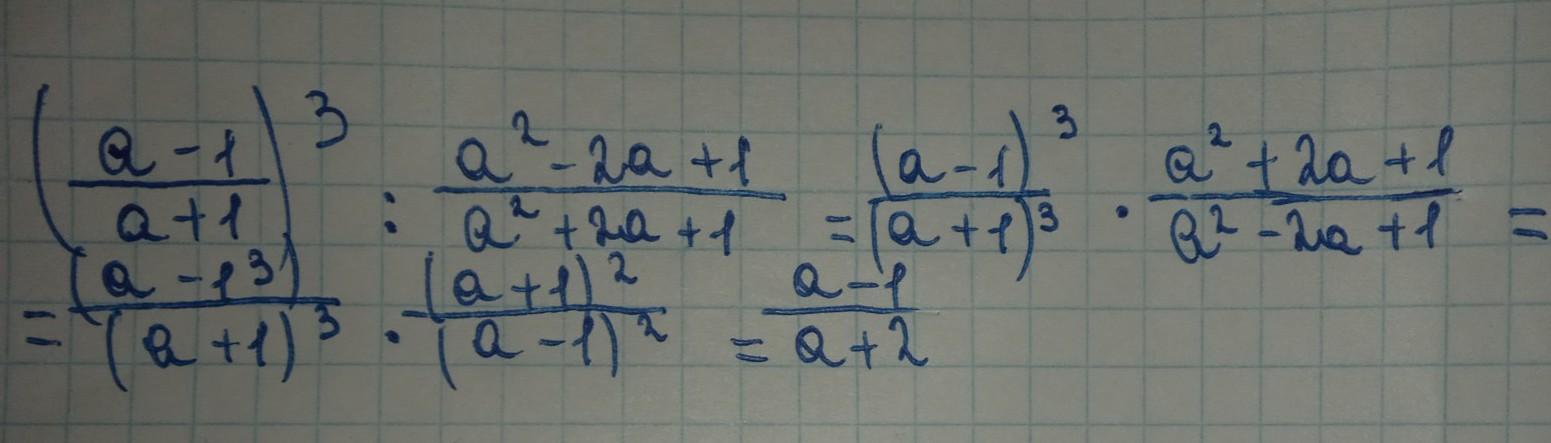 ((a-1)/(a+1))³ : (a²-2a+1)/(a²+2a+1) = (a-1)³/(a+1)³ · (a²+2a+1)/(a²-2a+1) =
= (a-1³)/(a+1)³ · (a+1)²/(a-1)² = (a-1)/(a+2)